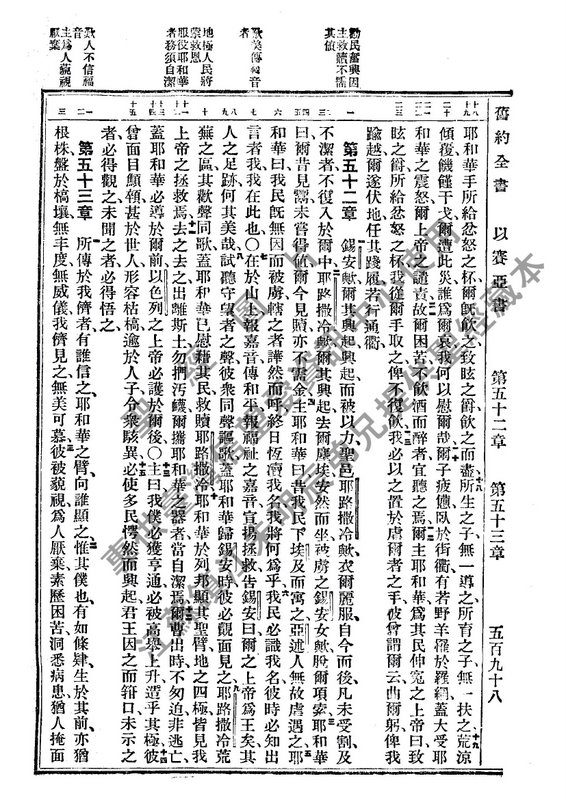 舊約全書 以賽亞書 第五十二章 第五十三章 五百九十八
勸民奮興因
主救贖不需
其價
歎美傳福音
者
地極人民將
蒙救恩
服役耶和華
者務須自潔
歎人不信福
音
主為人藐視
厭棄
耶和華手所給忿怒之杯爾既飲之致暈之爵飲之而盡所生之子無一導之所育之子無一扶之荒涼
傾復饑饉干戈爾遭此災誰為爾哀我何以慰爾哉爾子疲憊臥於街衢有若野羊羅於羅網蓋大受耶
和華之震怒爾上帝之譴責故爾困苦不飲酒而醉者宜聽之焉爾主耶和華為其民伸寃之上帝曰致
眩之爵所給忿怒之杯我從爾手取之俾不復飲我必以之置於虐爾者之手彼曾謂爾云曲爾躬俾我
踰越爾遂伏地任其踐履若行通衢
第五十二章 錫安歟爾其興起興起而被以力聖邑耶路撒冷歟衣爾麗服自今而後凡未受割及
不潔者不復入於爾中耶路撒冷歟爾其興起去爾塵埃安然而坐被虜之錫安女歟脫爾項索耶和華
曰爾昔見鬻未嘗得値爾今見贖亦不需金主耶和華曰昔我民下埃及而寓之亞述人無故虐遇之耶
和華曰我民旣無因而被虜轄之者譁然而呼終日恆瀆我名我將何為乎我民必識我名彼時必知出
言者我我在此也〇在於山上報嘉音傳和平報福祉之嘉音宣揚拯救告錫安曰爾之上帝為王矣其
人之足跡何其美哉試聽守望者之聲彼衆同聲謳歌蓋耶和華歸錫安時彼必覿面見之耶路撒冷荒
蕪之區其歡聲同歌蓋耶和華已慰藉其民救贖耶路撒冷耶和華於列邦顯其聖臂地之四極皆見我
上帝之拯救焉去之去之出離斯土勿捫汚衊爾攜耶和華之器者當自潔焉爾曹出時不匆迫非逃亡
蓋耶和華必導於爾前以色列之上帝必護於爾後〇主曰我僕必獲亨通必被高舉上升造乎其極彼
曾面目顑頷甚於世人形容枯槁逾於人子令衆駭異必使多民愕然而興起君王因之而箝口未示之
者必得觀之未聞之者必得悟之
第五十三章 所傳於我儕者有誰信之耶和華之臂向誰顯之惟其僕也有如條肄生於其前亦猶
根株盤於槁壤無丰度無威儀我儕見之無美可慕彼被藐視為人厭棄素歷困苦洞悉病患猶人掩面